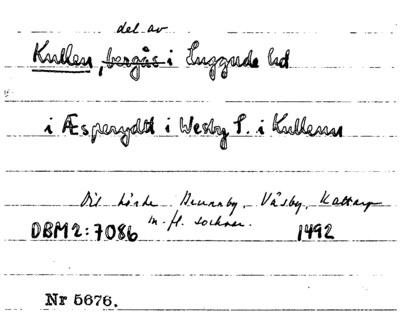 del av
Kullen, bergås i Luggude hd
i Æsperydh i Wesby S. i Kullenn
Dit hörde Brunnby, Väsby, Kattarp
m. fl. socknar.
DBM2:7086 1492
Nr 5676.